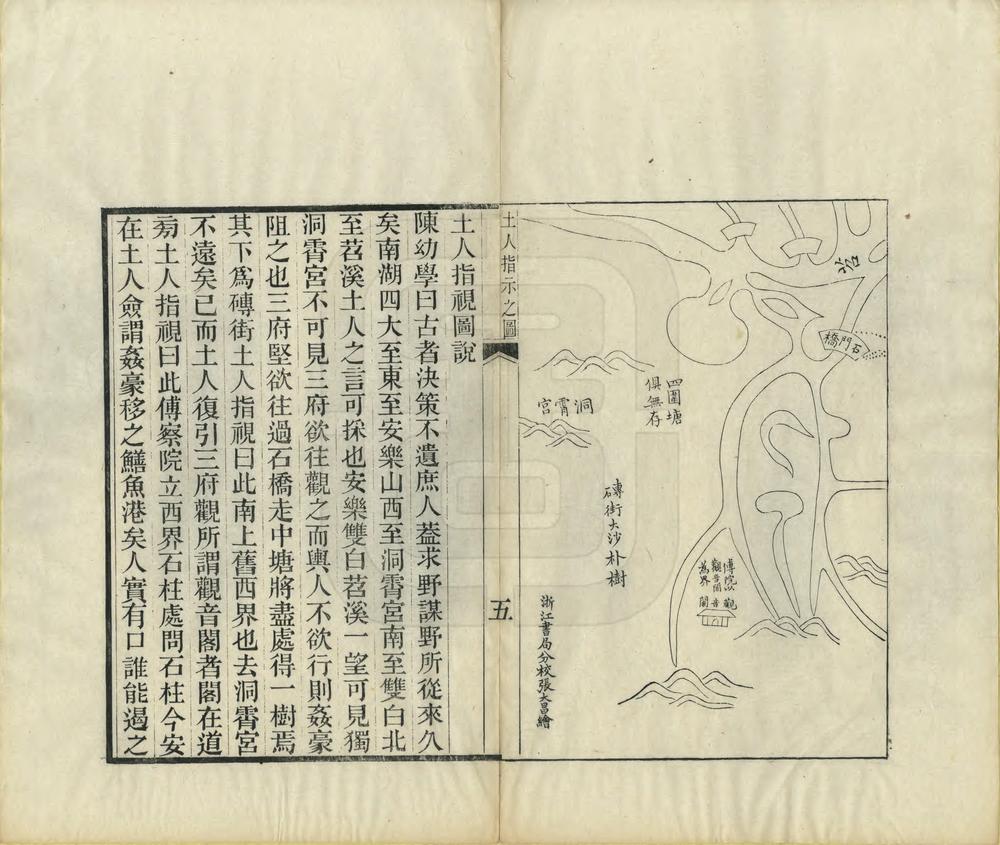 苕
石門橋
四圍塘
俱無存
洞霄宮
磚街大沙朴樹
傅院以
觀音閣
為界
觀音閣
浙江書局分校張大昌繪
土人指示之圖
五
土人指視圖說
陳幼學曰古者決策不遺庶人葢求野謀野所從來久
矣南湖四大至東至安樂山西至洞霄宮南至雙白北
至苕溪土人之言可採也安樂雙白苕溪一望可見獨
洞霄宮不可見三府欲往觀之而輿人不欲行則姦豪
阻之也三府堅欲往過石橋走中塘將盡處得一樹焉
其下爲磚街土人指視曰此南上舊西界也去洞霄宮
不遠矣已而土人復引三府觀所謂觀音閣者閣在道
旁土人指視曰此傅察院立西界石柱處問石柱今安
在土人僉謂姦豪移之鱔魚港矣人實有口誰能遏之